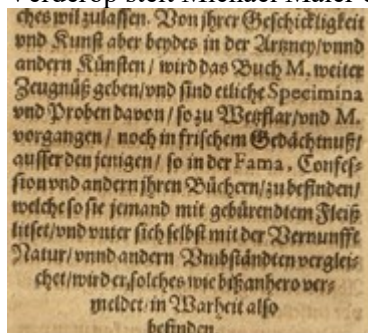 ches wil zulassen. Von jhrer Geschickligkeit
vnd Kunst aber beydes in der Artzney/vnnd
andern Künsten / wird das Buch M. weiter
Zeugnüß geben/vnd sind etliche Specimina
vnd Proben davon / so zu Wetzflar/vnd M.
vorgangen / noch in frischem Gedächtnuß/
ausser den jenigen / so in der Fama, Confes-
sion vnd andern jhren Büchern/zu befinden/
welche so sie jemand mit gebürendtem Fleiß
litset/vnd vnter sich selbst mit der Vernunfft
Natur/vnnd andern Vmbständten verglei-
chet/wird er solches wie bißanhero ver-
meldet/in Warheit also
befinden